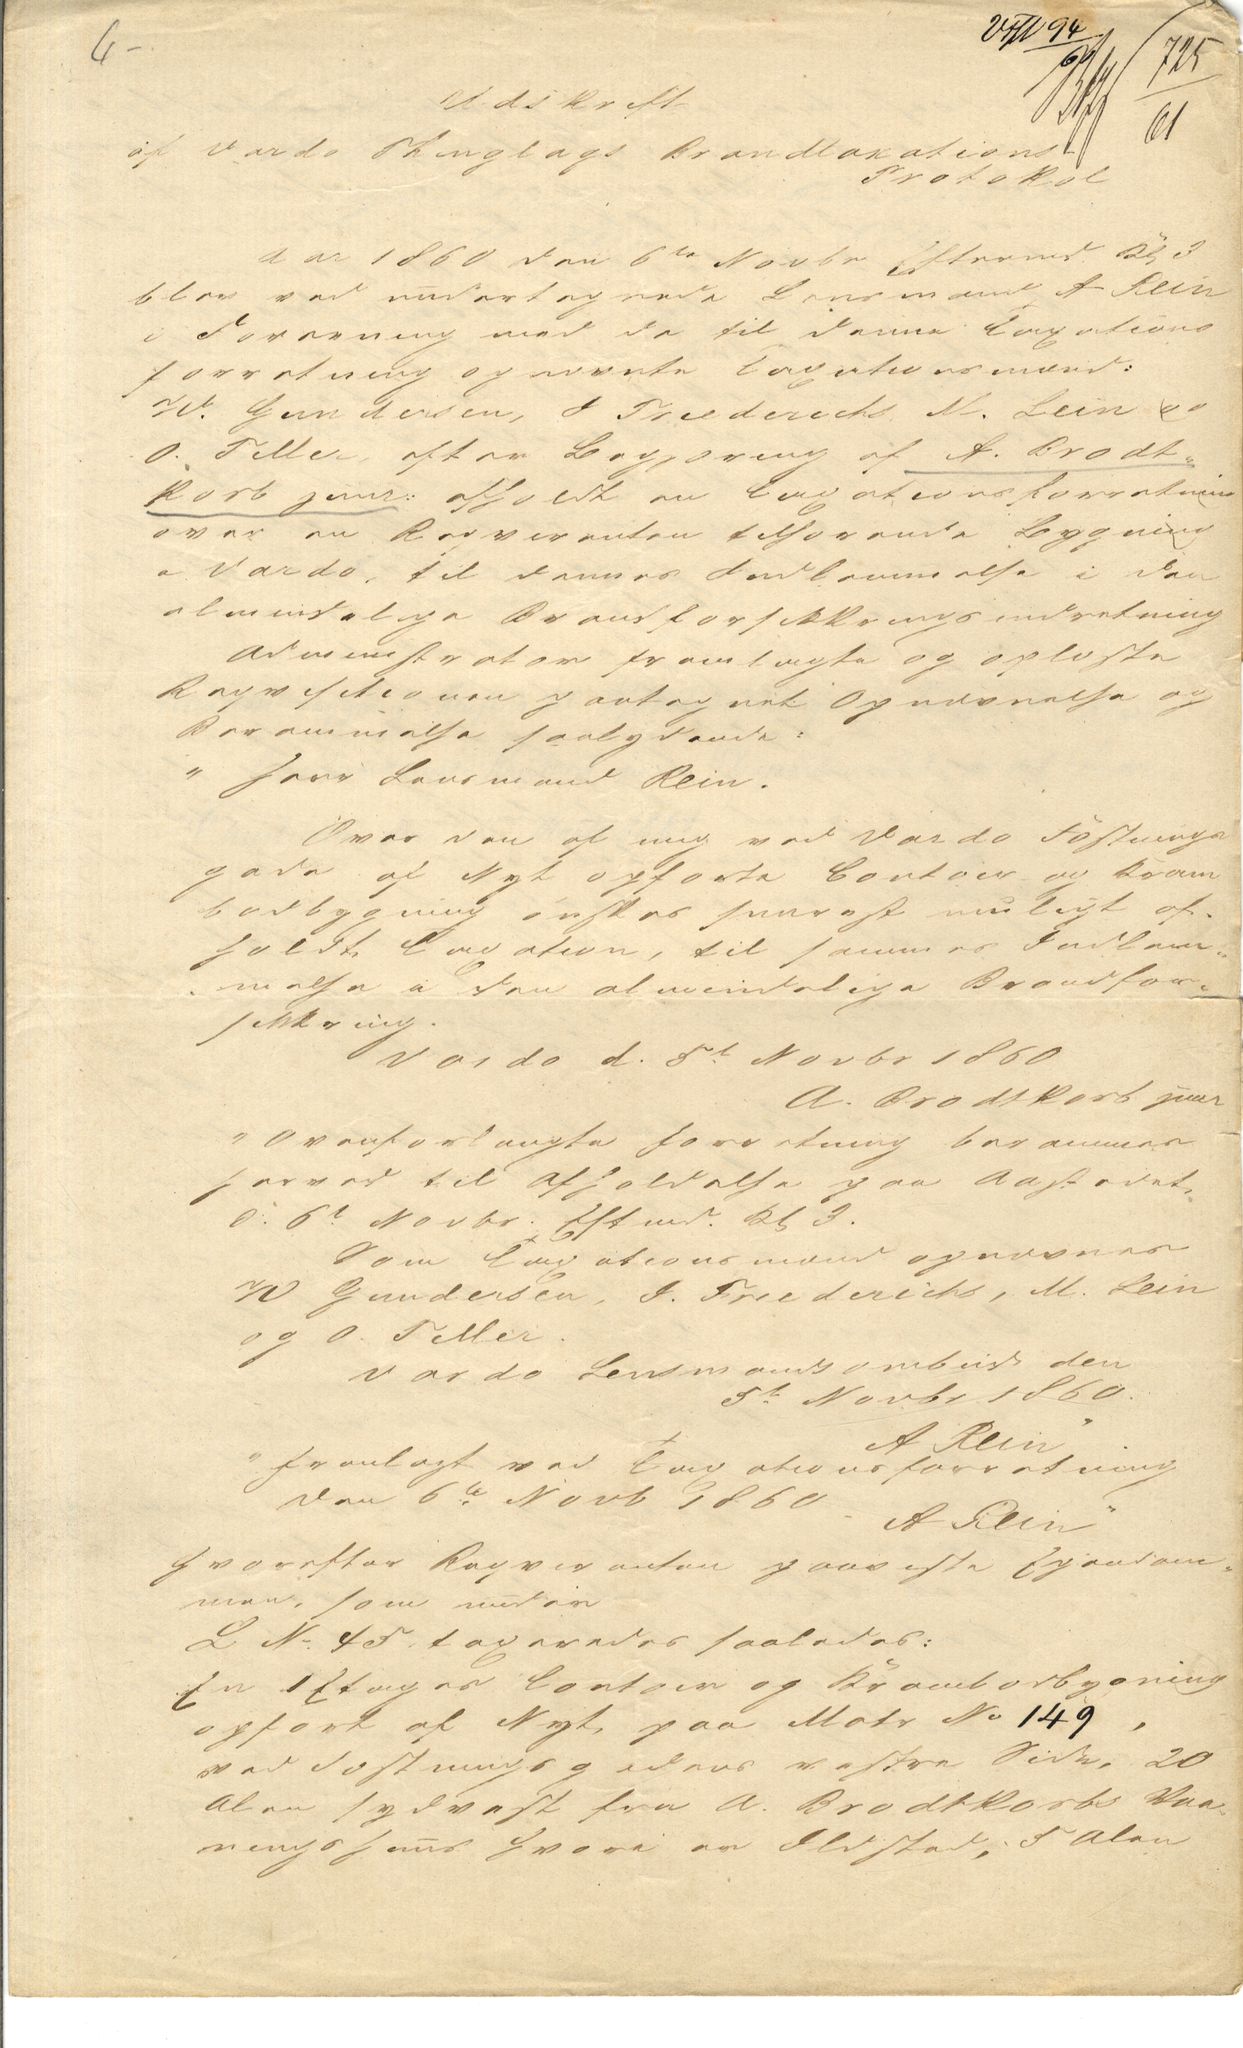 6-
VIII 94
725
61
Udskrift
af Vardø Thinglags Brandtaxations
Protokol
Aar 1860 den 6te Novbr Eftermd. Kl 3
blev ved undertegnede Lensmand A Rein
i Forening med de til denne Taxations
forretning opnævnte Taxationsmænd:
W. Gundersen, J Friederichs, M. Lein og
O. Teller, efter Begjæring af A. Brodt-
korb junr: afholdt en Taxationsforretning
over en Reqvirenten tilhørende Bygning
i Vardø, til dennes Indlemmelse i den
almindelige Brandforsikkringsindretning
Administrator fremlagte og oplæste
Reqvisitionen paategnet Opnævnelse og
Berammelse saalydende:
" Herr Lensmand Rein.
Over den af mig ved Vardø Fæstnings
gade af Nyt opførte Contoir og Kram
bodbygning ønskes snarest muligt af-
holdt Taxation, til sammes Indlem-
melse i den almindelige Brandfor-
sikkring.
Vardø d. 5t Novbr 1860
A. Brodtkorb junr
" Ovenforlangte Forretning berammes
herved til Afholdelse paa Aastedet,
d. 6t Novbr. Eftmd. Kl 3.
Som Taxationsmænd opnævnes
W Gundersen, J. Friederichs, M. Lein
og O. Teller.
Vardø Lensmandsombud den
5te Novbr 1860.
A Rein"
" Fremlagt ved Taxationsforretning
den 6te Novb 1860
A Rein"
Hvorefter Reqvirenten paaviste Eiendom-
men, som under
L No 45 taxeredes saaledes:
En 1 Etages Contoir og Krambodbygning
opført af Nyt, paa Matr No 149,
ved Fæstningsgadens vestre Side, 20
Alen sydvest fra A. Brodtkorbs Vaa-
ningshuus hvori er Ildsted, 5 Alen